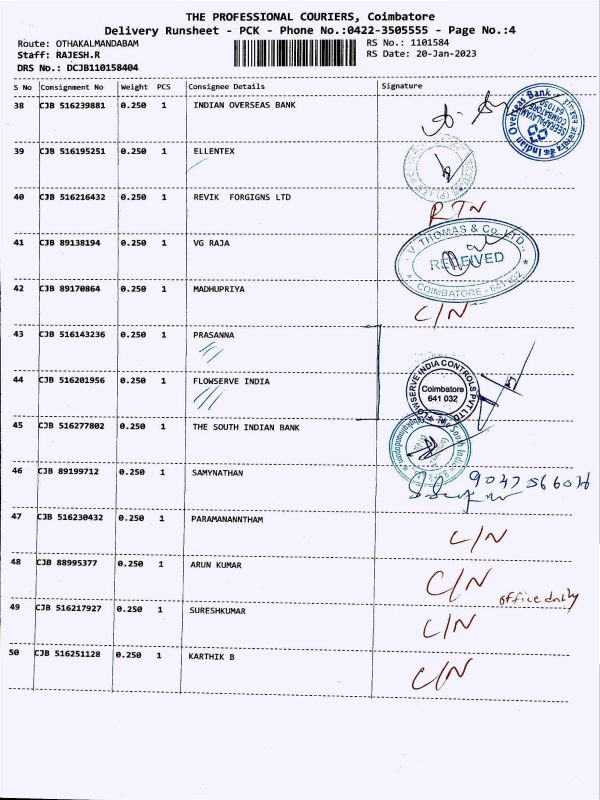 THE PROFESSIONAL COURIERS, Coimbatore
Delivery Runsheet - PCK - Phone No.:0422-3505555 - Page No.:4
Route: OTHAKALMANDABAM RS No.: 1101584
Staff: RAJESH.R RS Date: 20-Jan-2023
DRS No.: DCJB110158404
S No Consignment No Weight PCS Consignee Details Signature
38 CJB 516239881 0.250 1 INDIAN OVERSEAS BANK
Indian Overseas Bank
39 CJB 516195251 0.250 1 ELLENTEX
40 CJB 516216432 0.250 1 REVIK FORGIGNS LTD RTN
41 CJB 89138194 0.250 1 VG RAJA
V. THOMAS & Co. LTD.,
RECEIVED
COIMBATORE - 641 032
42 CJB 89170864 0.250 1 MADHUPRIYA C/N
43 CJB 516143236 0.250 1 PRASANNA
44 CJB 516201956 0.250 1 FLOWSERVE INDIA
FLOWSERVE INDIA CONTROLS PVT LTD
Coimbatore
641 032
45 CJB 516277802 0.250 1 THE SOUTH INDIAN BANK
South Indian Bank
46 CJB 89199712 0.250 1 SAMYNATHAN
47 CJB 516230432 0.250 1 PARAMANANNTHAM C/N
48 CJB 88995377 0.250 1 ARUN KUMAR C/N
49 CJB 516217927 0.250 1 SURESHKUMAR C/N office only
50 CJB 516251128 0.250 1 KARTHIK B C/N